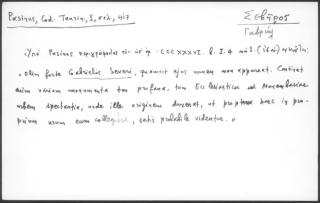 Pasinus, Cod. Taurin, I, σελ. 417
Σεβῆρος
Γαβριὴλ
Ὑπὸ Pasinus περιγράφεται ὁ ὑπ' ἀρ. CCCXXXVI. b. I. 4
« Olim forte Gabrielis Severi, quamvis ejus nomen non appareat. Continet
enim variam monumenta tam profana, tum Ecclesiastica ad Monembasiae
urbem spectantia, unde ille originem ducebat, ut propterea haec in pro-
prium usum eum collegisse, satis probabile videatur. »